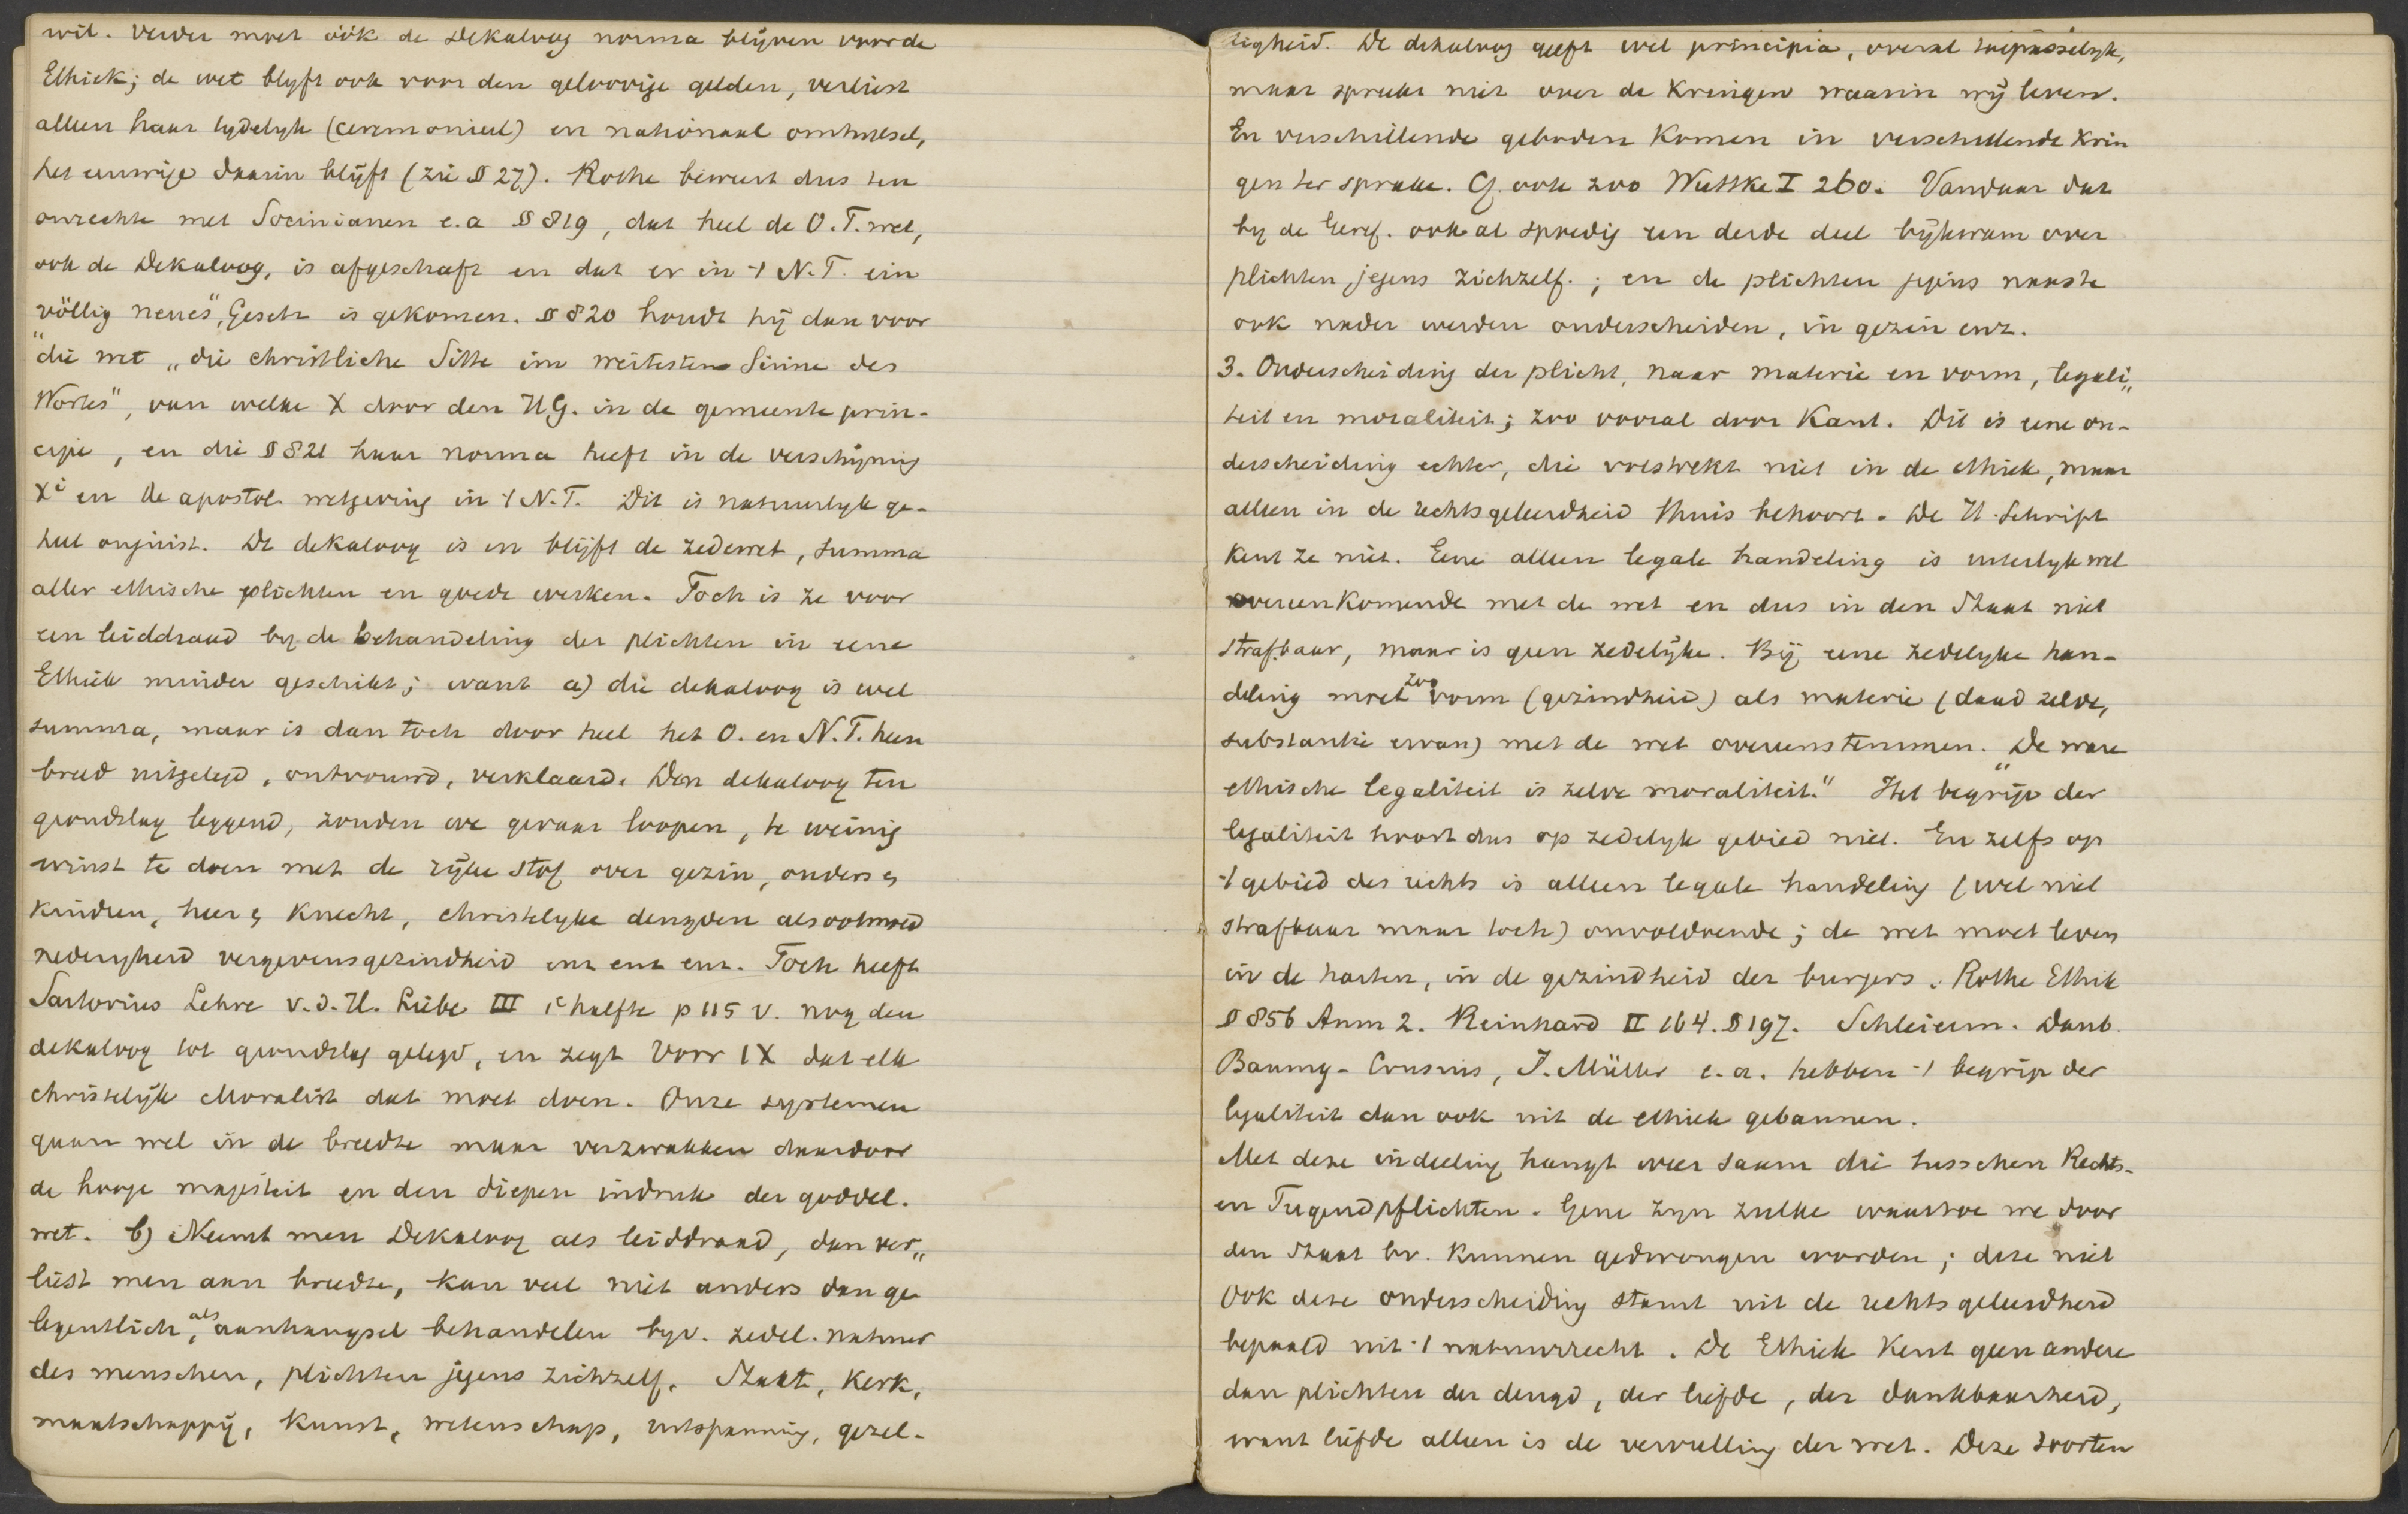 wil. Verder moet óók de Dekaloog norma blijven voor de
Ethiek; de wet blyft ook voor den geloovige gelden, verliest
alleen haar tydelyk (ceremonieel) en nationaal omhulsel,
het eeuwige daarin blijft (zie § 27). Rothe beweert dus ten
onrechte met Socinianen e.a § 819, dat heel de O.T. wet,
ook de Dekaloog, is afgeschaft en dat er in 't N.T. ein
völlig neues" Gesetz is gekomen. § 820 houdt hij dan voor
die wet „die christliche Sitte im weitesten Sinne des
Wortes", van welke X door den H.G. in de gemeente prin-
cipe, en die § 821 haar norma heeft in de verschijning
Xi en de apostol. wetgeving in 't N.T. Dit is natuurlyk ge-
heel onjuist. De dekaloog is en blijft de zedewet, summa
aller ethische plichten en goede werken. Toch is ze voor
een leiddraad by de behandeling der plichten in eene
Ethiek minder geschikt; want a) die dekaloog is wel
summa, maar is dan toch door heel het O. en N.T. heen
breed uitgelegd, ontvouwd, verklaard. Den dekaloog ten
grondslag leggend, zouden we gevaar loopen, te weinig
winst te doen met de rijke stof over gezin, ouders &
kinderen, heer & knecht, christelyke deugden als ootmoed
nederigheid vergevensgezindheid enz enz enz. Toch heeft
Sartorius Lehre v.d.H. Liebe III 1e halfte p 115 v. nog den
dekaloog tot grondslag gelegd, en zegt Vorr IX dat elk
christelijk Moralist dat moet doen. Onze systemen
gaan wel in de breedte maar verzwakken daardoor
de hooge majesteit en den diepen indruk der goddel.
wet. b) Neemt men Dekaloog als leiddraad, dan ver„
liest men aan breedte, kan veel niet anders dan ge
legentlich, als aanhangsel behandelen byv. zedel. natuur
des menschen, plichten jegens zichzelf. Staat, Kerk,
maatschappij, Kunst, wetenschap, uitspanning, gezel-
ligheid. De dekaloog geeft wel principia, overal toepasselyk,
maar spreekt niet over de Kringen waarin wij leven.
En verschillende geboden Komen in verschillende Krin
gen ter sprake. Cf. ook zoo Wuttke I 260. Vandaar dat
by de Geref. ook al spoedig een derde deel bijkwam over
plichten jegens zichzelf.; en de plichten jegens naaste
ook nader werden onderscheiden, in gezin enz.
3. Onderscheiding der plicht, naar materie en vorm, legali„
teit en moraliteit; zoo vooral door Kant. Dit is eene on-
derscheiding echter, die volstrekt niet in de ethiek, maar
alleen in de rechtsgeleerdheid thuis behoort. De H. Schrift
Kent ze niet. Eene alleen legale handeling is uiterlyk wel
overeenkomende met de wet en dus in den Staat niet
strafbaar, maar is geen zedelijke. Bij eene zedelyke han-
deling moet zoo vorm (gezindheid) als materie (daad zelve,
substantie ervan) met de wet overeenstemmen. „De ware
ethische legaliteit is zelve moraliteit." Het begrijp der
legaliteit hoort dus op zedelyk gebied niet. En zelfs op
't gebied des rechts is alleen legale handeling (wel niet
strafbaar maar toch) onvoldoende; de wet moet leven
in de harten, in de gezindheid der burgers. Rothe Ethik
§ 856 Anm 2. Reinhard II 164. § 197. Schleierm. Daub.
Baumg-Crusius, J. Müller e.a. hebben 't begrip der
legaliteit dan ook uit de ethiek gebannen.
Met deze indeeling hangt weer saam die tusschen Rechts-
en Tugendpflichten. Gene zyn zulke waartoe we door
den Staat bv. Kunnen gedwongen worden; deze niet
Ook deze onderscheiding stamt uit de rechtsgeleerdheid
bepaald uit 't natuurrecht. De Ethiek Kent geen andere
dan plichten der deugd, der liefde, der dankbaarheid,
want liefde alleen is de vervulling der wet. Deze soorten